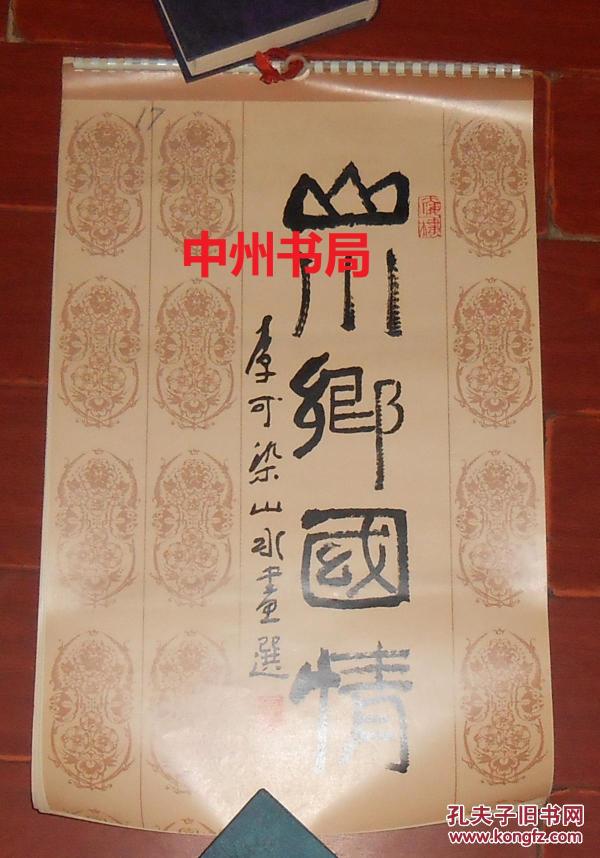 17
山川鄉國情
李可染山水畫選
中州书局
孔夫子旧书网
www.kongfz.com